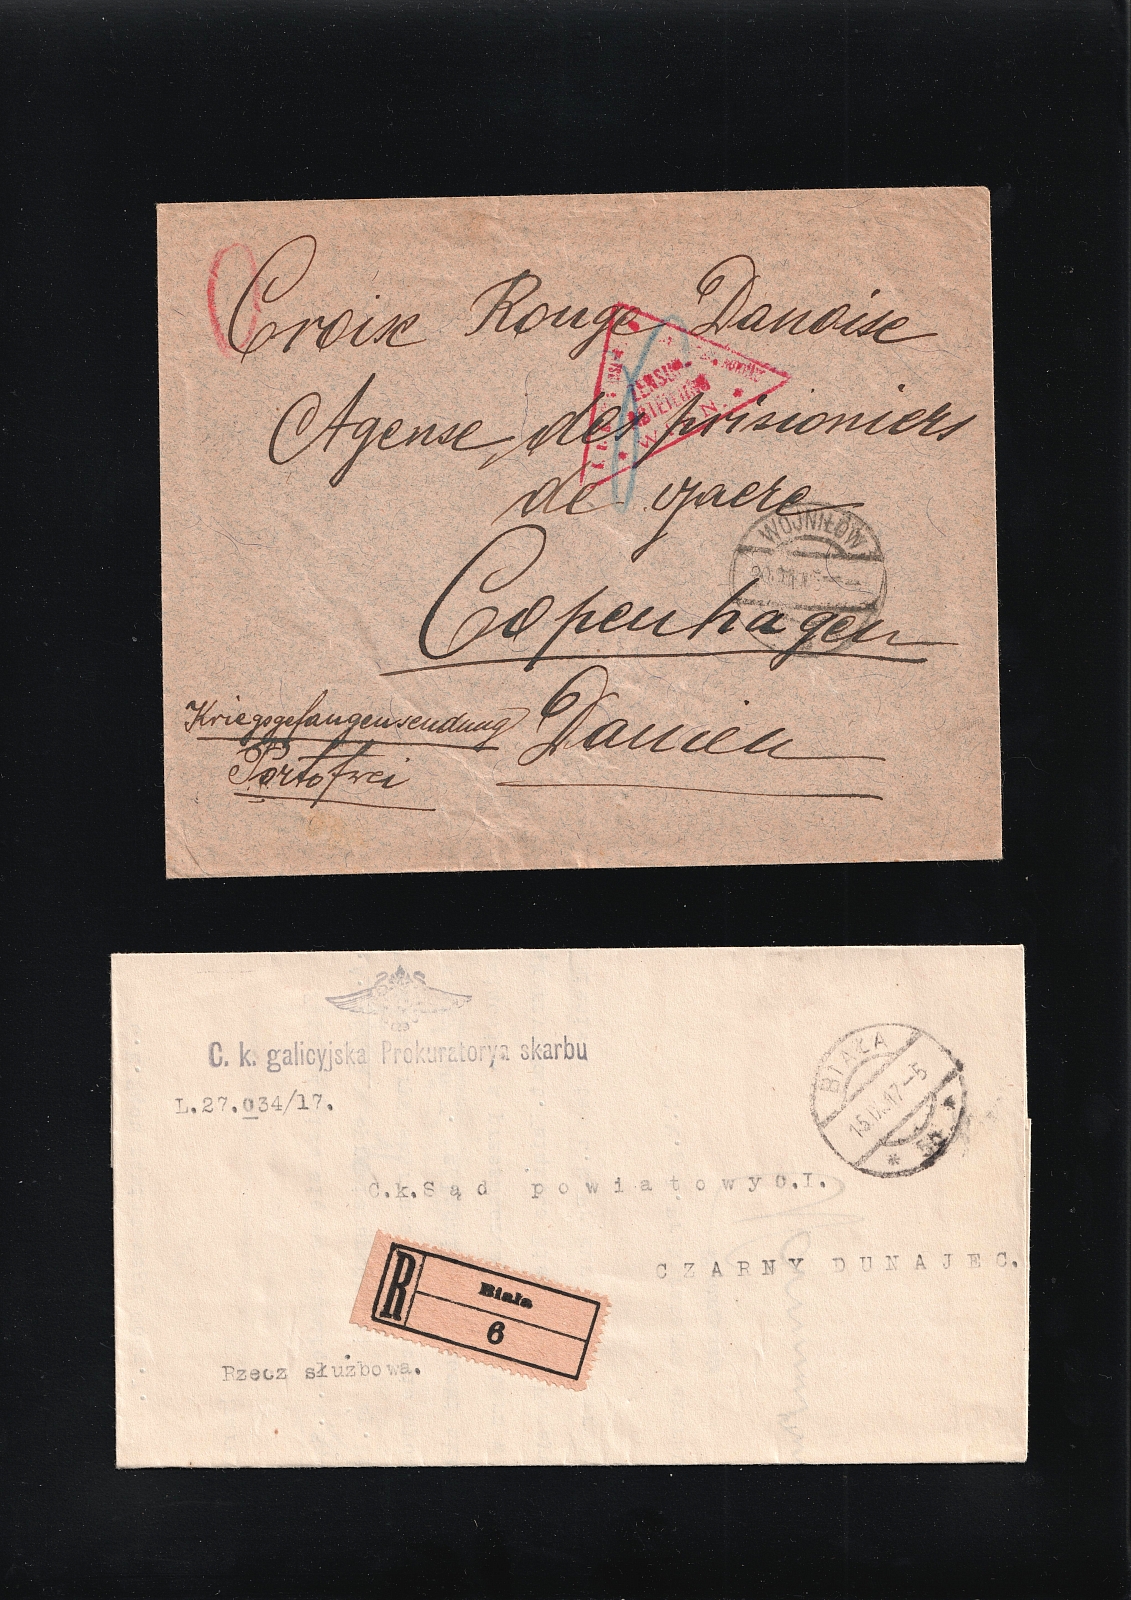 Croix Rouge Danoise
Agense des prisioniers
de guere
Copenhagen
Danien
Kriegsgefangensendung
Portofrei
WIEN
WOJNIŁÓW
C. k. galicyjska Prokuratorya skarbu
L.27.034/17.
BIAŁA
15.IX.17-5
* 5a *
C.k.Sąd powiatowy c.I.
CZARNY DUNAJEC.
R
Biała
6
Rzecz służbowa.